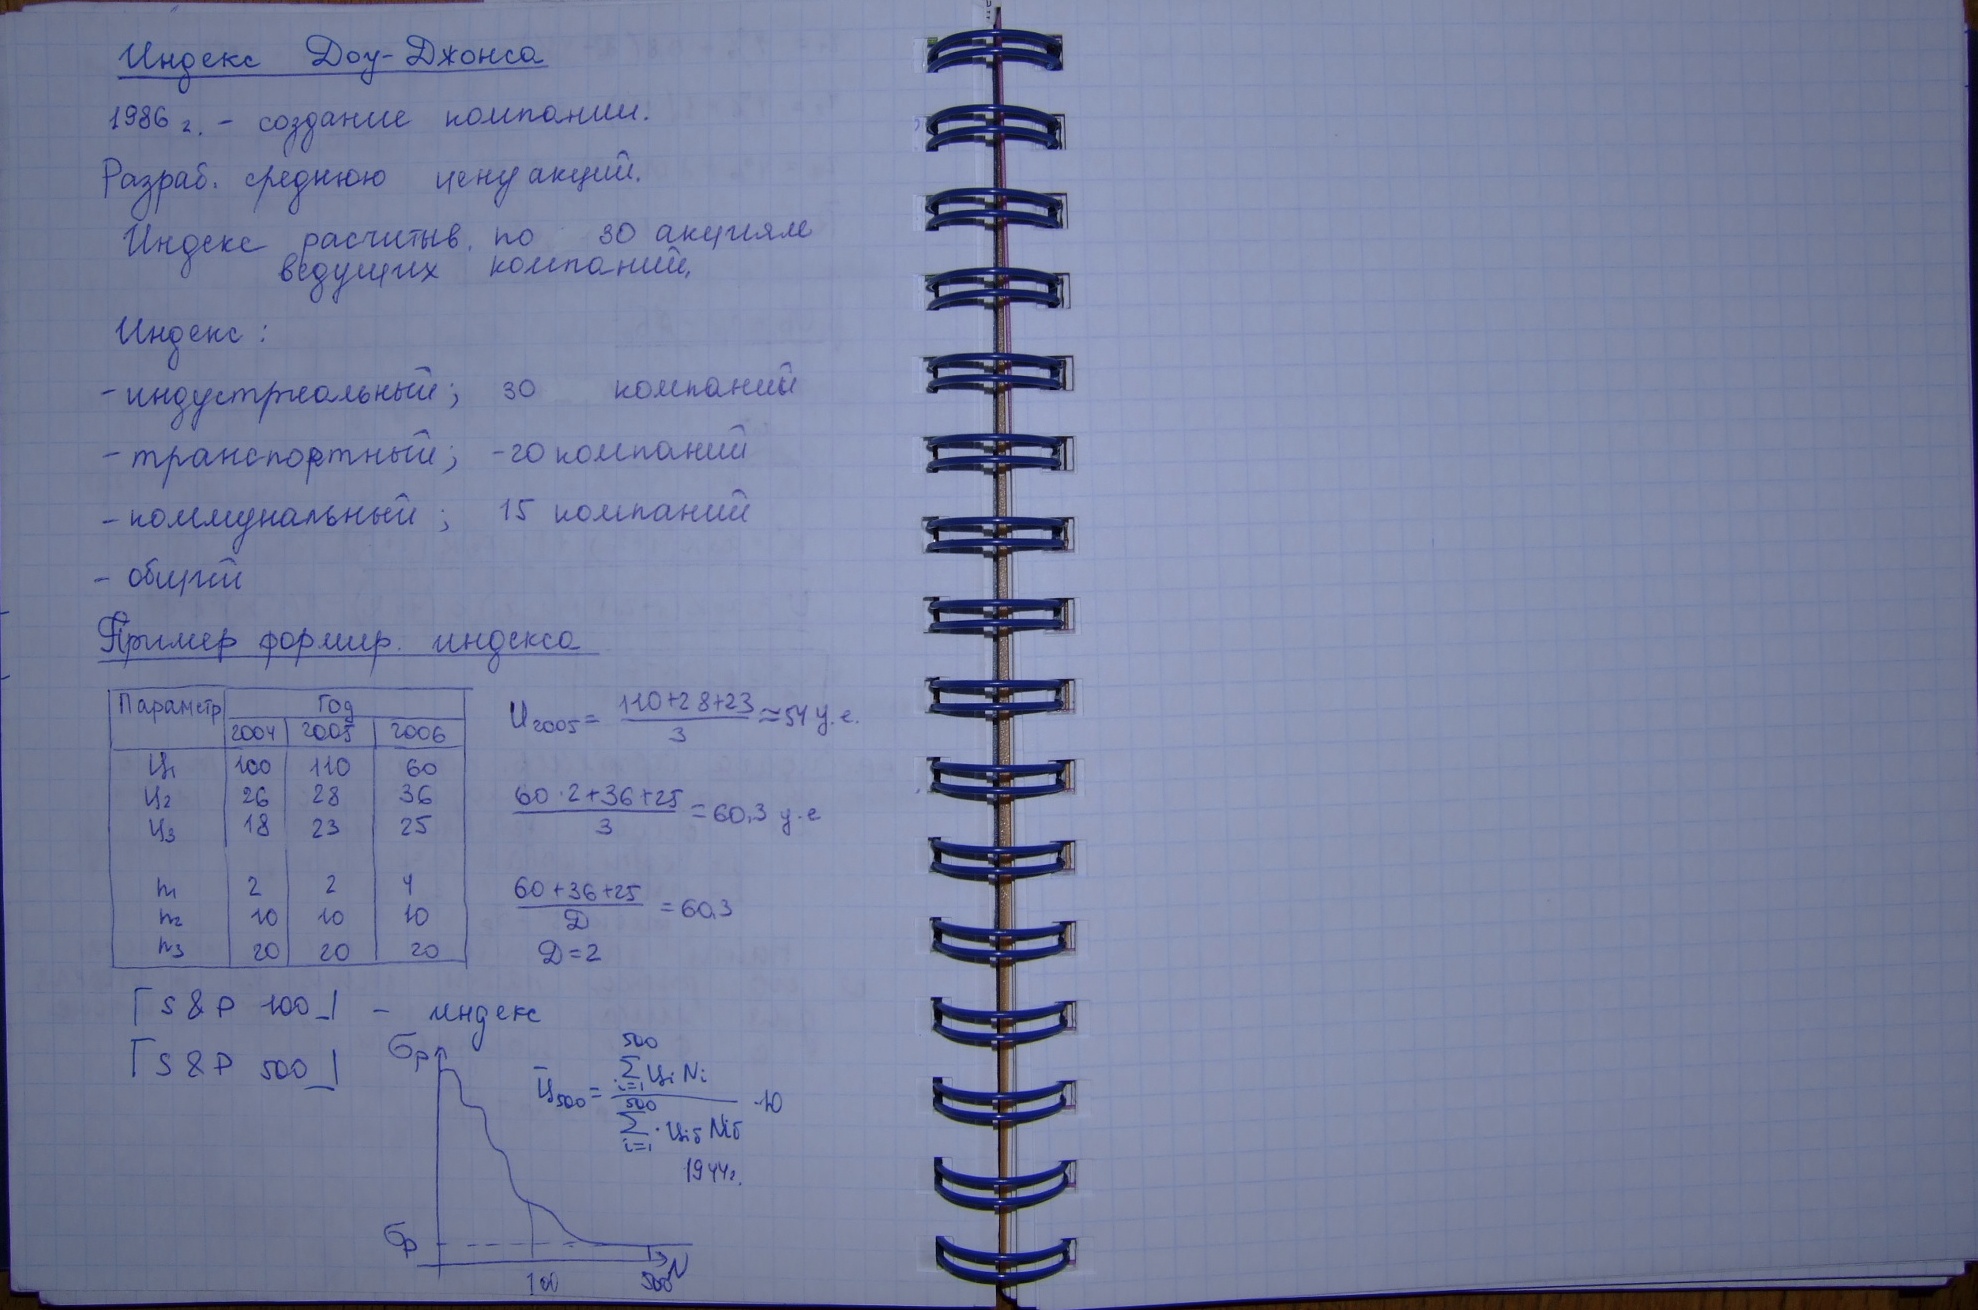 Индекс Доу-Джонса
1986 г. - создание компании.
Разраб. среднюю цену акций.
Индекс расчитыв. по 30 акциям
ведущих компаний.
Индекс:
- индустриальный; 30 компаний
- транспортный; - 20 компаний
- коммунальный; 15 компаний
- общий
Пример формир. индекса
Параметр Год
2004 2005 2006
Ц₁ 100 110 60
Ц₂ 26 28 36
Ц₃ 18 23 25
n₁ 2 2 4
n₂ 10 10 10
n₃ 20 20 20
И₂₀₀₅ = (110+28+23)/3 ≈ 54 у.е.
(60·2+36+25)/3 = 60,3 у.е
(60+36+25)/Д = 60,3
Д=2
⌈S&P 100⌋ - индекс
⌈S&P 500⌋
Ц̄₅₀₀ = (500 Σ i=1 Цi Ni)/(500 Σ i=1 · Цiб Niб) ·10
1944г.
σp
σp
100 500 N